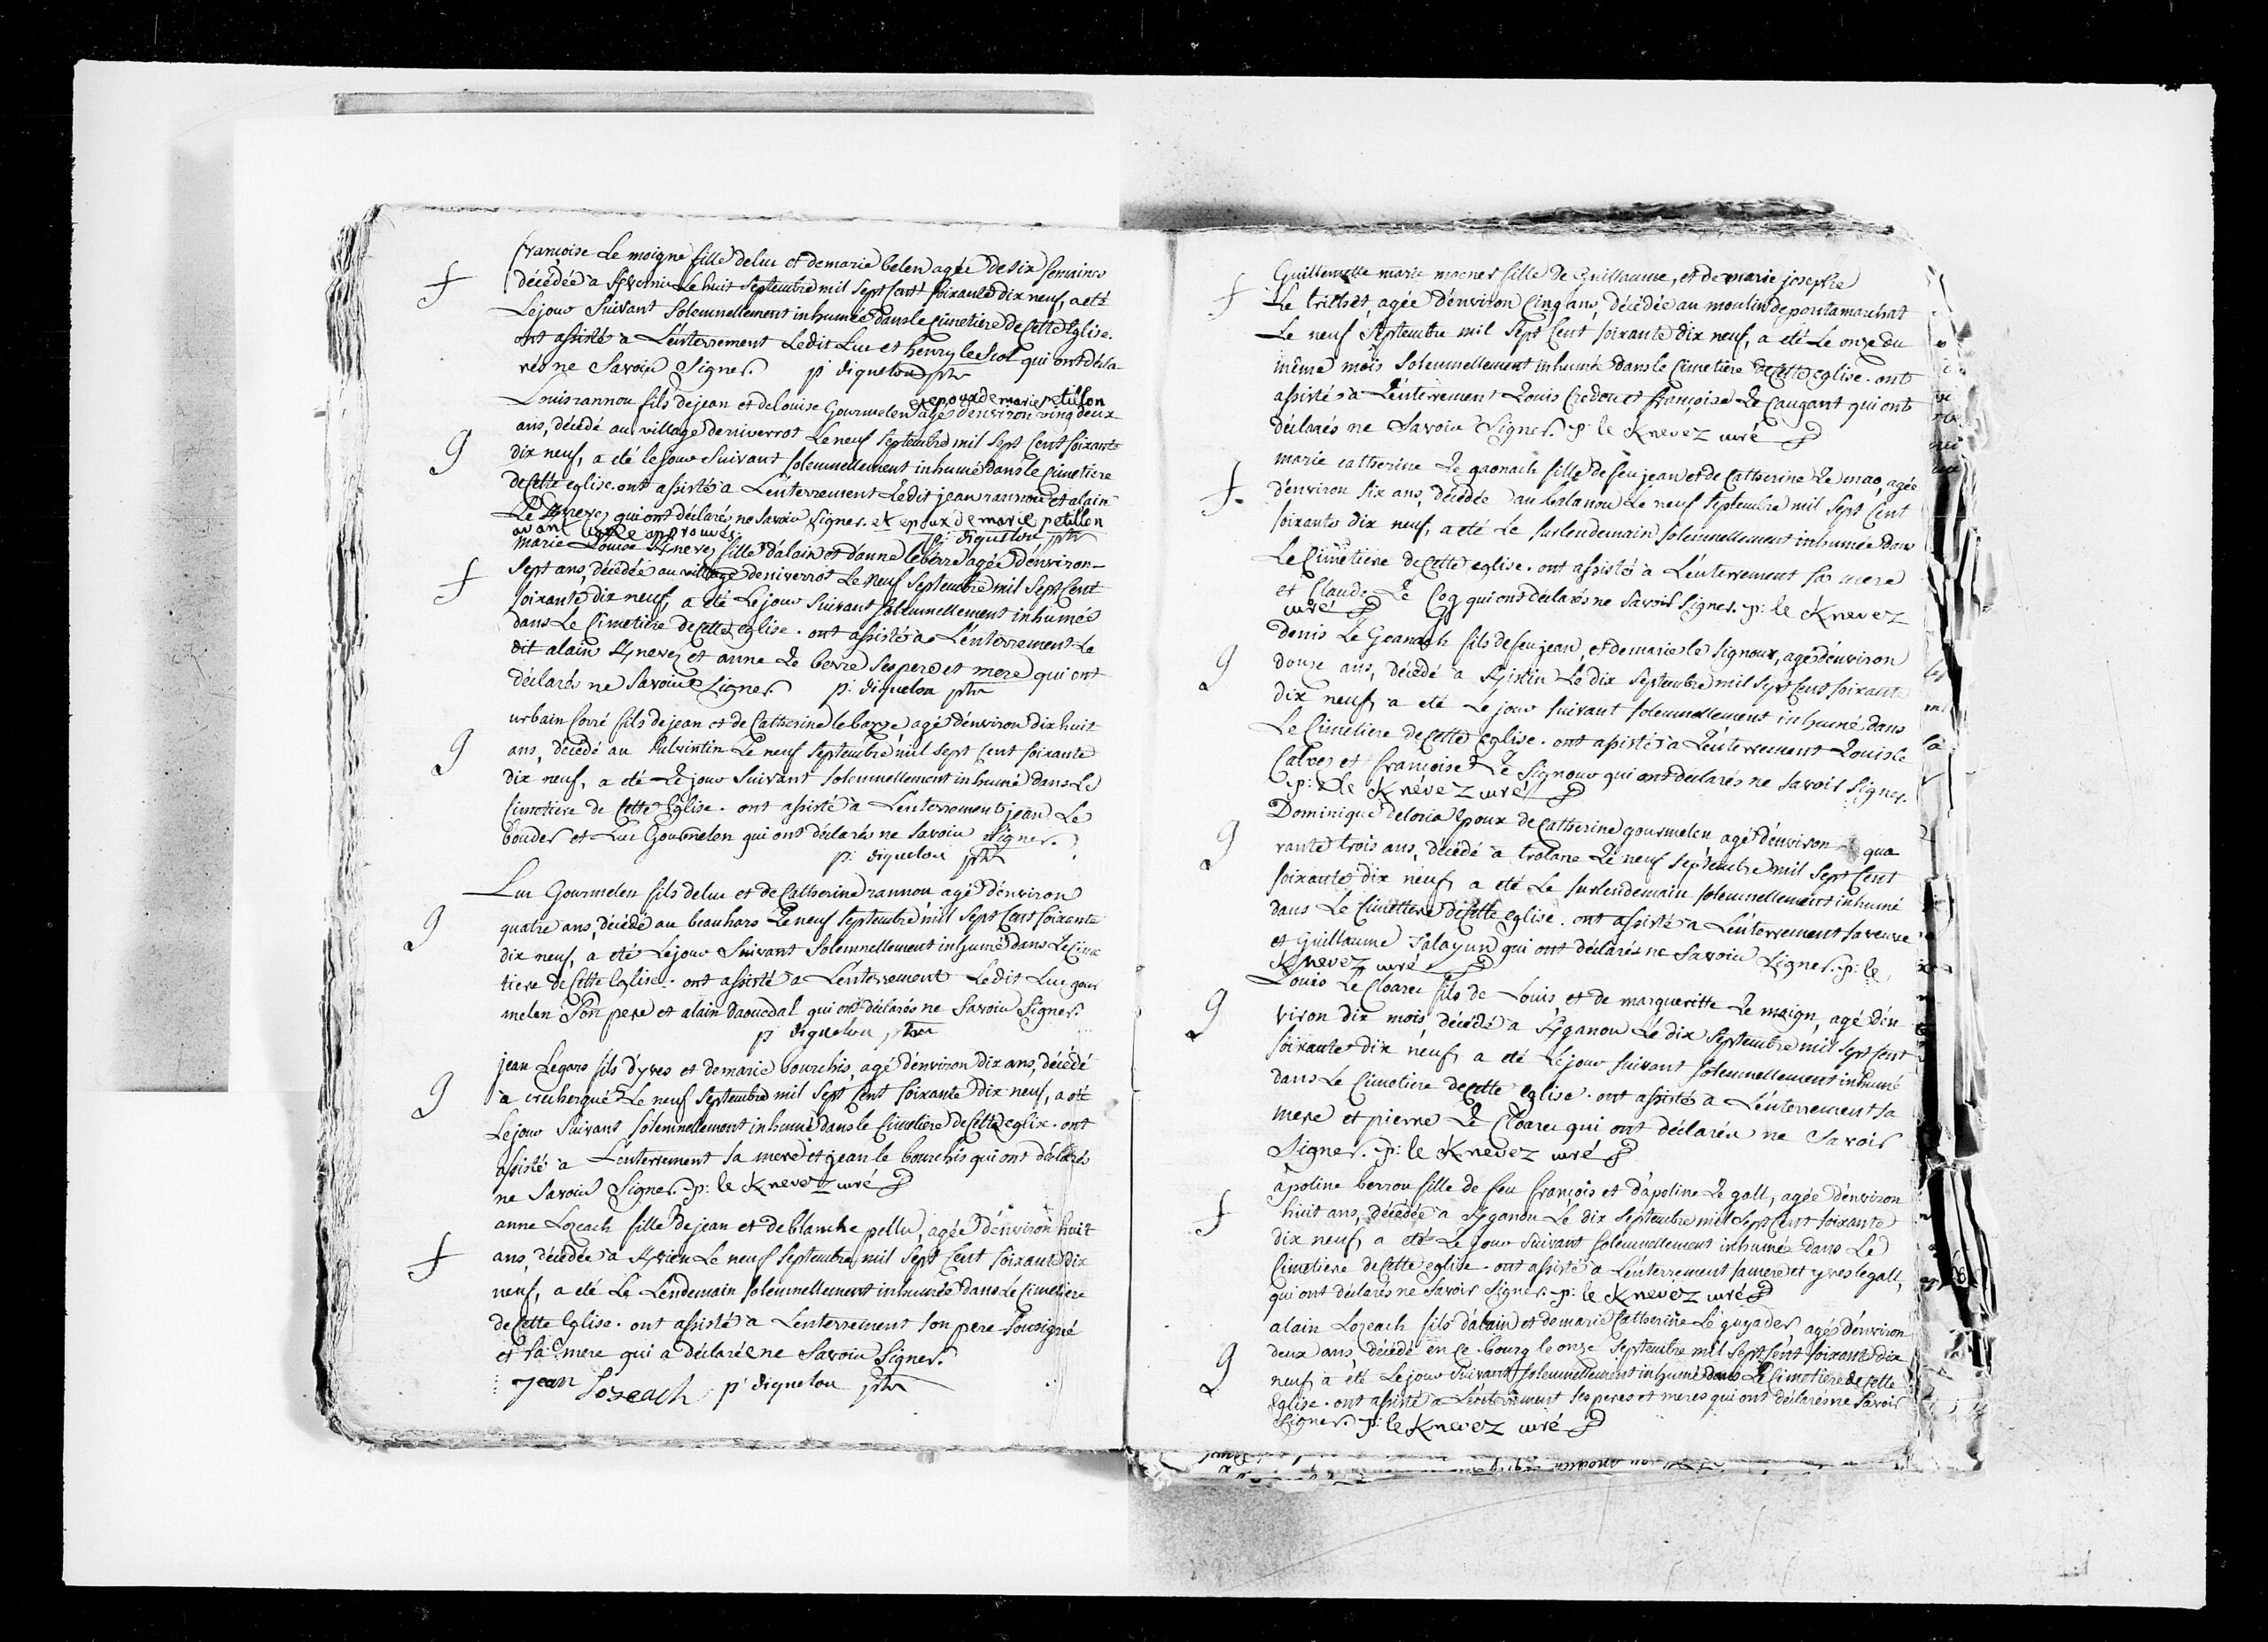 françoise Le moigne fille de luc et de marie belen agée de six semaines
f
décédée à Le huit septembre mil sept cent soixante dix neuf, a eté
Le jour suivant solemnellement inhumée dans le cimetiere de cette Eglise.
ont assisté a L'enterrement Ledit Luc et henry le scol qui ont décla-
rés ne savoir signer. p: diquelou ptre
et epoux de marie petillon
Louis rannou fils de jean et de louise Gourmelen agé d'environ ving deux
ans, décédé au village de niverrot Le neuf septembre mil sept cent soixante
g
dix neuf, a eté le jour suivant solemnellement inhumé dans le cimetiere
de cette eglise. ont assisté a L'enterrement Ledit jean rannou et alain
Le Knevez qui ont déclarés ne savoir signer. et epoux de marie petillon
avant ligne approuvé. p: diquelou ptre
marie Louise Knevez fille d'alain et d'anne le berre agée d'environ
f
sept ans, décédée au village de niverrot Le neuf septembre mil sept cent
soixante dix neuf, a eté Le jour suivant solemnellement inhumée
dans Le Cimetiere de cette eglise. ont assisté a L'enterrement Le
dit alain Knevez et anne Le berre ses pere et mere qui ont
déclarés ne savoir signer. p: diquelou ptre
urbain Corré fils de jean et de Catherine le agé d'environ dix huit
g
ans, décédé au Le neuf septembre mil sept cent soixante
dix neuf, a eté Le jour suivant solemnellement inhumé dans Le
Cimetiere de Cette Eglise. ont assisté a L'enterrement jean Le
bouder et Luc Gourmelen qui ont déclarés ne savoir signer.
p: diquelou ptre
Luc Gourmelen fils de luc et de Catherine rannou agé d'environ
g
quatre ans, décédé au beauhars Le neuf septembre mil sept cent soixante
dix neuf, a eté Le jour suivant solemnellement inhumé dans Le cime
tiere de Cette Eglise. ont assisté a L'enterrement Ledit Luc gour
melen son pere et alain daoudal qui ont déclarés ne savoir signer.
p: diquelou ptre
jean Legars fils d'yves et de marie bourchis, agé d'environ dix ans, décédé
g
à Le neuf septembre mil sept cent soixante dix neuf, a eté
Le jour suivant solemnellement inhumé dans le Cimetiere de Cette eglise. ont
assisté a L'enterrement sa mere et jean le bourchis qui ont déclarés
ne savoir signer. p: le Knevez curé
anne Lozeach fille de jean et de blanche pellu, agée d'environ huit
f
ans, décédée à Le neuf septembre mil sept cent soixante dix
neuf, a eté Le Lendemain solemnellement inhumée dans Le Cimetiere
de Cette Eglise. ont assisté a L'enterrement son pere sousigné
et sa mere qui a déclaré ne savoir signer.
jean Lozeach p: diquelou ptre
Guillemette marie moenes fille de Guillaume, et de marie josephe
f
Le agée d'environ cinq ans, décédée au moulin de
Le neuf septembre mil sept cent soixante dix neuf, a eté Le onze du
même mois solemnellement inhumée dans le Cimetiere de Cette eglise. ont
assistés a L'enterrement Louis et françoise Le Caugant qui ont
déclarés ne savoir signer. p: le Knevez curé
marie catherine Le gaonach fille de feu jean et de Catherine Le mao, agée
f.
d'environ six ans, décédée au Le neuf septembre mil sept cent
soixante dix neuf, a eté Le surlendemain solemnellement inhumée dans
Le Cimetiere de Cette eglise. ont assisté a L'enterrement sa mere
et Claude Le Coq qui ont déclarés ne savoir signer. p: le Knevez
curé
denis Le Goanach fils de feu jean, et de marie le signour, agé d'environ
g
douze ans, décédé à Le dix septembre mil sept cent soixante
dix neuf, a eté Le jour suivant solemnellement inhumé dans
Le Cimetiere de Cette eglise. ont assisté a L'enterrement Louis le
Calvez et françoise Le signour qui ont déclarés ne savoir signer.
p: le Knévez curé
Dominique deloria epoux de Catherine gourmelen, agé d'environ qua
g
rante trois ans, décédé à Le neuf septembre mil sept cent
soixante dix neuf, a eté Le surlendemain solemnellement inhumé
dans Le Cimettiere de Cette eglise. ont assisté a L'enterrement sa veuve
et Guillaume Salayun qui ont déclarés ne savoir signer. p: le
Knevez curé
Louis Le Cloarec fils de Louis, et de margueritte Le moign, agé d'en
g
viron dix mois, décédé a Kganou Le dix septembre mil sept cent
soixante dix neuf, a eté Le jour suivant solemnellement inhumé
dans Le Cimetiere de Cette eglise. ont assistés a L'enterrement sa
mere et pierre Le Cloarec qui ont déclarés ne savoir
signer. p: le Knevez curé
apoline berrou fille de feu françois et d'apoline Le gall, agée d'environ
f
huit ans, décédée a Kganou Le dix septembre mil sept cent soixante
dix neuf, a eté Le jour suivant solemnellement inhumée dans Le
Cimetiere de Cette eglise. ont assisté a L'enterrement sa mere et yves le gall,
qui ont déclarés ne savoir signer. p: le Knevez curé
alain Lozeach fils d'alain et de marie Catherine Le guyader, agé d'environ
g
deux ans, décédé en ce bourg le onze septembre mil sept cent soixante dix
neuf, a eté Le jour suivant solemnellement inhumé dans Le Cimetiere de Cette
Eglise. ont assisté a L'enterrement ses peres et meres qui ont déclarés ne savoir
signer. p: le Knevez curé